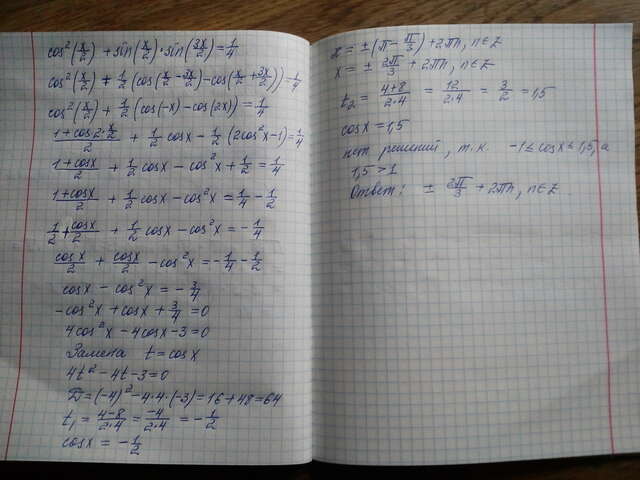 cos²(x/2) + sin(x/2)·sin(3x/2) = 1/4
cos²(x/2) + 1/2 (cos(x/2 - 3x/2) - cos(x/2 + 3x/2)) = 1/4
cos²(x/2) + 1/2 (cos(-x) - cos(2x)) = 1/4
(1+cos2·x/2)/2 + 1/2 cosx - 1/2 (2cos²x-1) = 1/4
(1+cosx)/2 + 1/2 cosx - cos²x + 1/2 = 1/4
(1+cosx)/2 + 1/2 cosx - cos²x = 1/4 - 1/2
1/2 + cosx/2 + 1/2 cosx - cos²x = -1/4
cosx/2 + cosx/2 - cos²x = -1/4 - 1/2
cosx - cos²x = -3/4
-cos²x + cosx + 3/4 = 0
4cos²x - 4cosx - 3 = 0
Замена t = cosx
4t² - 4t - 3 = 0
D = (-4)² - 4·4·(-3) = 16 + 48 = 64
t₁ = (4-8)/(2·4) = -4/(2·4) = -1/2
cosx = -1/2
x = ±(π - π/3) + 2πn, n∈Z
x = ± 2π/3 + 2πn, n∈Z
t₂ = (4+8)/(2·4) = 12/(2·4) = 3/2 = 1,5
cosx = 1,5
нет решений, т.к. -1 ≤ cosx ≤ 1,5, а
1,5 > 1
Ответ: ± 2π/3 + 2πn, n∈Z